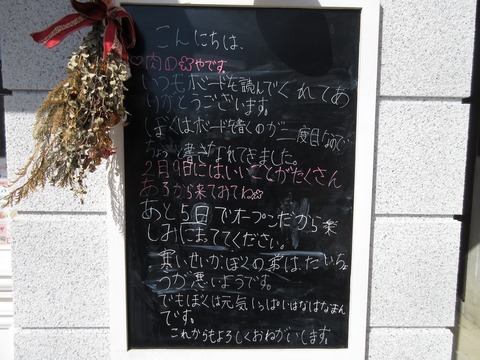 こんにちは、
♡肉のやです。
いつもボードを読んでくれてあ
りがとうございます。
ぼくはボードを書くのが二度目なので
ちょっと書きなれてきました。
2月9日にはいいことがたくさん
あるから来ておてね
あと5日でオープンだから楽
しみにまっててください。
寒いせいか、ぼくの弟は、たいちょ
うが悪いようです。
でもぼくは元気いっぱいはなはなまん
です。
これからもよろしくおねがいします。